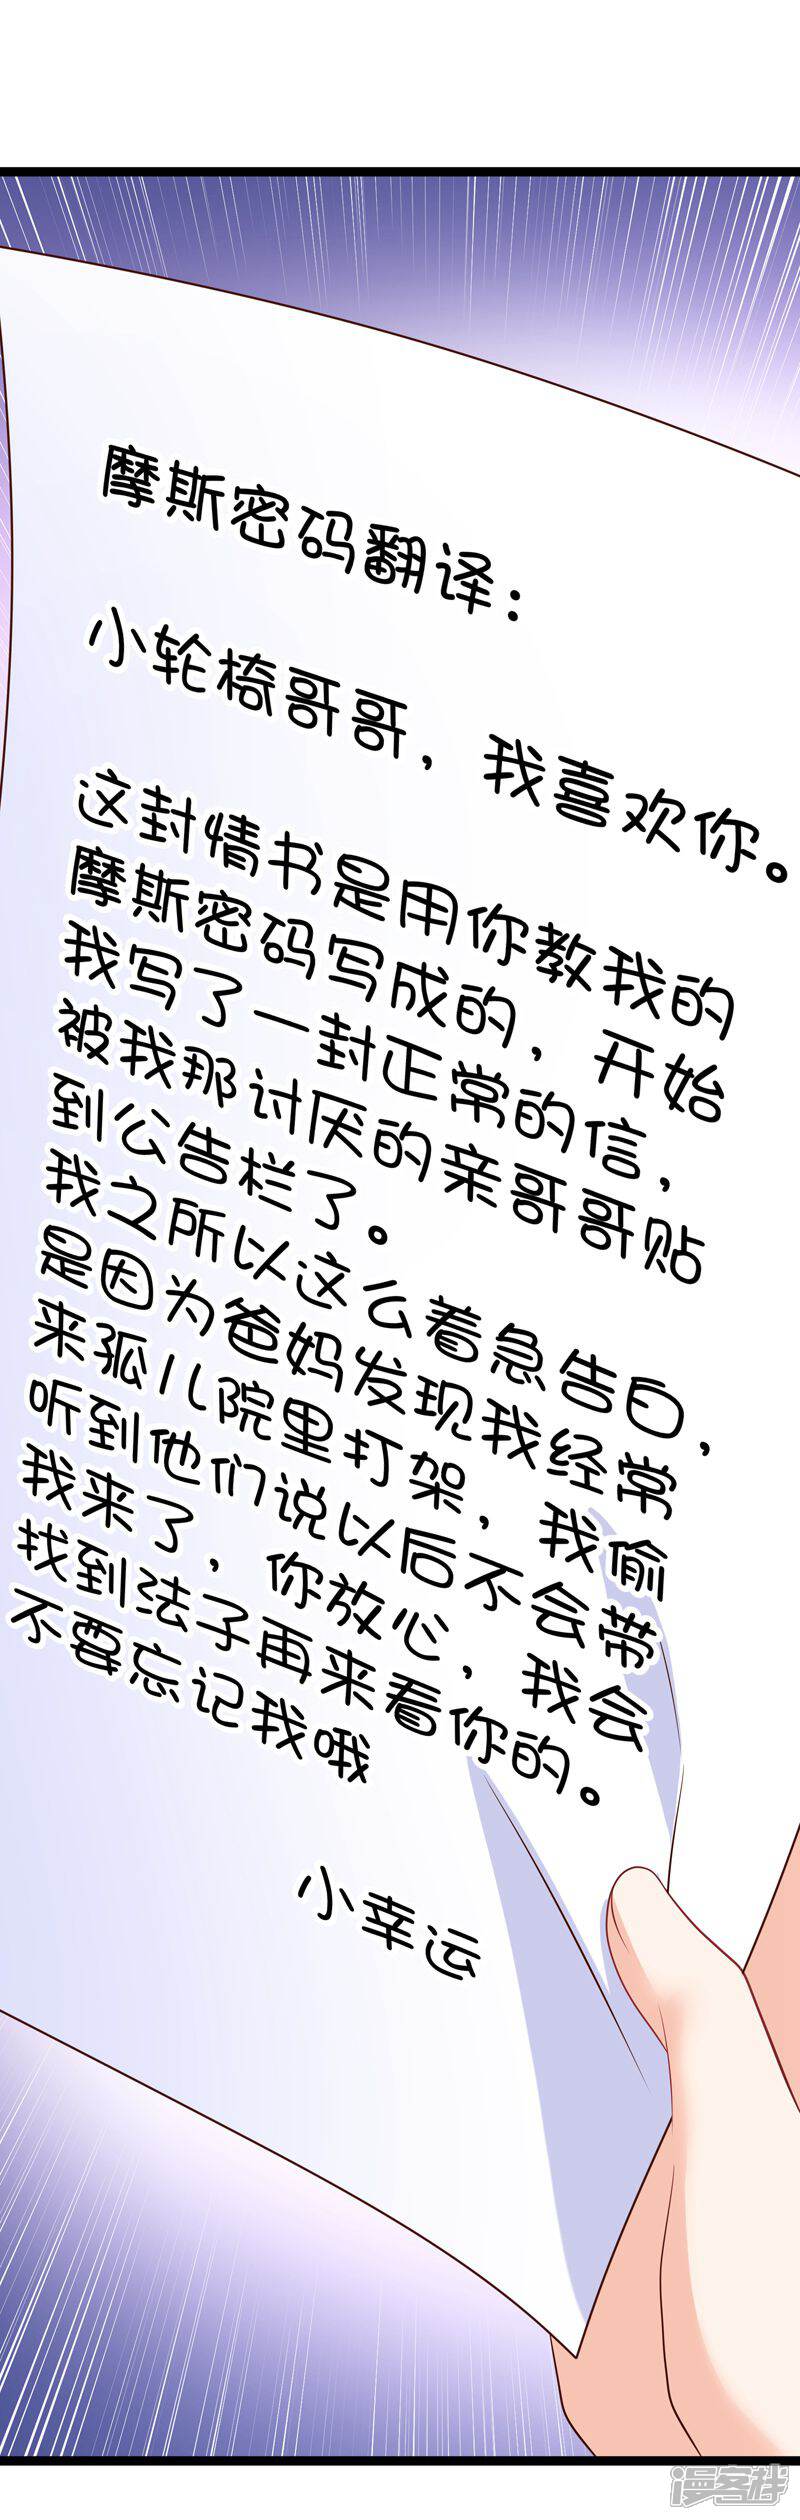 摩斯密码翻译：
小轮椅哥哥，我喜欢你。
这封情书是用你教我的
摩斯密码写成的，开始
我写了一封正常的信，
被我那讨厌的亲哥哥贴
到公告栏了。
我之所以这么着急告白，
是因为爸妈发现我经常
来孤儿院里打架，我偷
听到他们说以后不会带
我来了，你放心，我会
找到法子再来看你的。
不要忘记我哦
小幸运
漫客栈